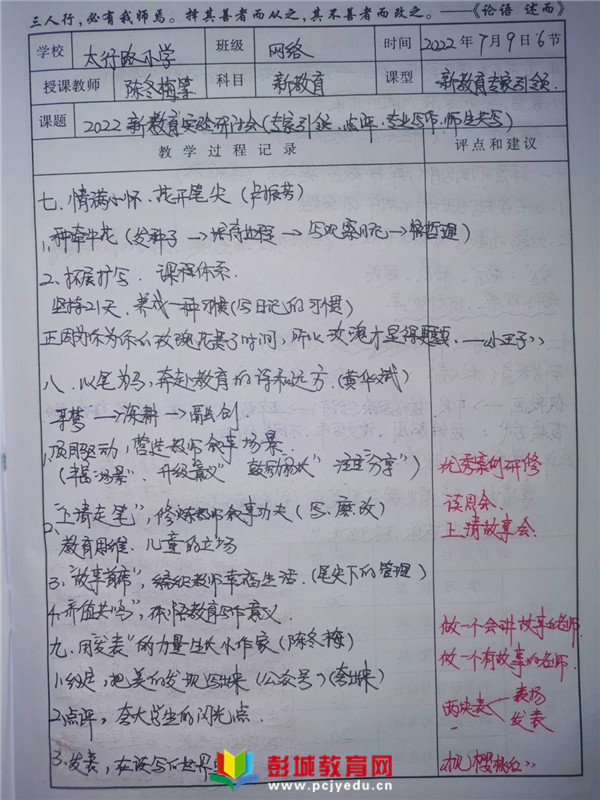 三人行,必有我师焉。择其善者而从之,其不善者而改之。——《论语 述而》
学校 太行路小学 班级 网络 时间 2022年7月9日6节
授课教师 陈冬梅等 科目 新教育 课型 新教育专家引领
课题 2022新教育实验研讨会(专家引领、点评、专业写作、师生共写)
教学过程记录 评点和建议
七、情满小怀、花开笔尖
1、种牵牛花(发种子→培育过程→写观察日记→悟哲理)
2、拓展扩写、课程体系
坚持21天,养成一种习惯(写日记的习惯)
正因为你为你的玫瑰花费了时间,所以玫瑰才显得重要。——小王子》
八、以笔为马,奔赴教育的诗和远方
寻梦→深耕→融创
1、项目驱动,营造教师叙事场景
(丰富"场景"、升级意义" 注重"分享") 优秀案例研修
读思会
"走笔",修炼教师叙事功夫(写、磨、改) 故事会
2、教育思维、儿童的立场
3、"故事首席",编织教师幸福生活(笔尖下的管理)
4、价值共鸣",体悟教育写作意义
做一个会讲故事的老师
九、用"发表"的力量生长小作家(陈冬梅) 做一个有故事的老师
1、约定,把美的发现写出来(公众号)
两块表 表扬 发表
2、点评,夸大学生的闪光点
3、发表,在读写的世界
彭城教育网
www.pcjyedu.cn